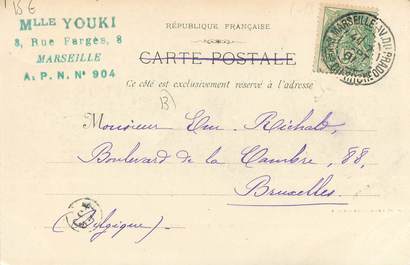 15 €
RÉPUBLIQUE FRANÇAISE
MLLE YOUKI
8, Rue Farges, 8
MARSEILLE
A. P. N. N° 904
CARTE POSTALE
Ce côté est exclusivement reservé à l'adresse
MARSEILLE
PRADO
Monsieur Em. Richald,
Boulevard de la Cambre, 88,
Bruxelles.
(Belgique)